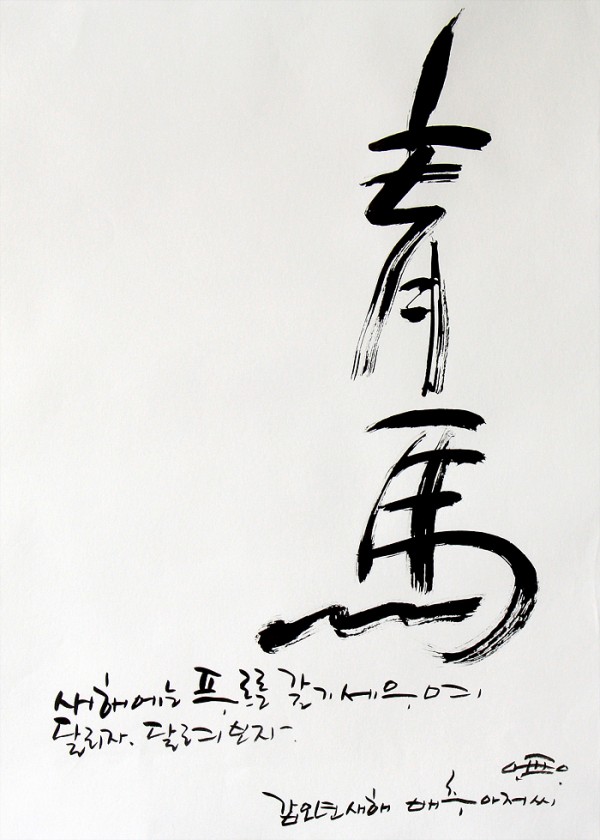 青馬
새해에는 푸르른 갈기 세우며
달리자. 달려보자.
갑오년새해 배추아저씨